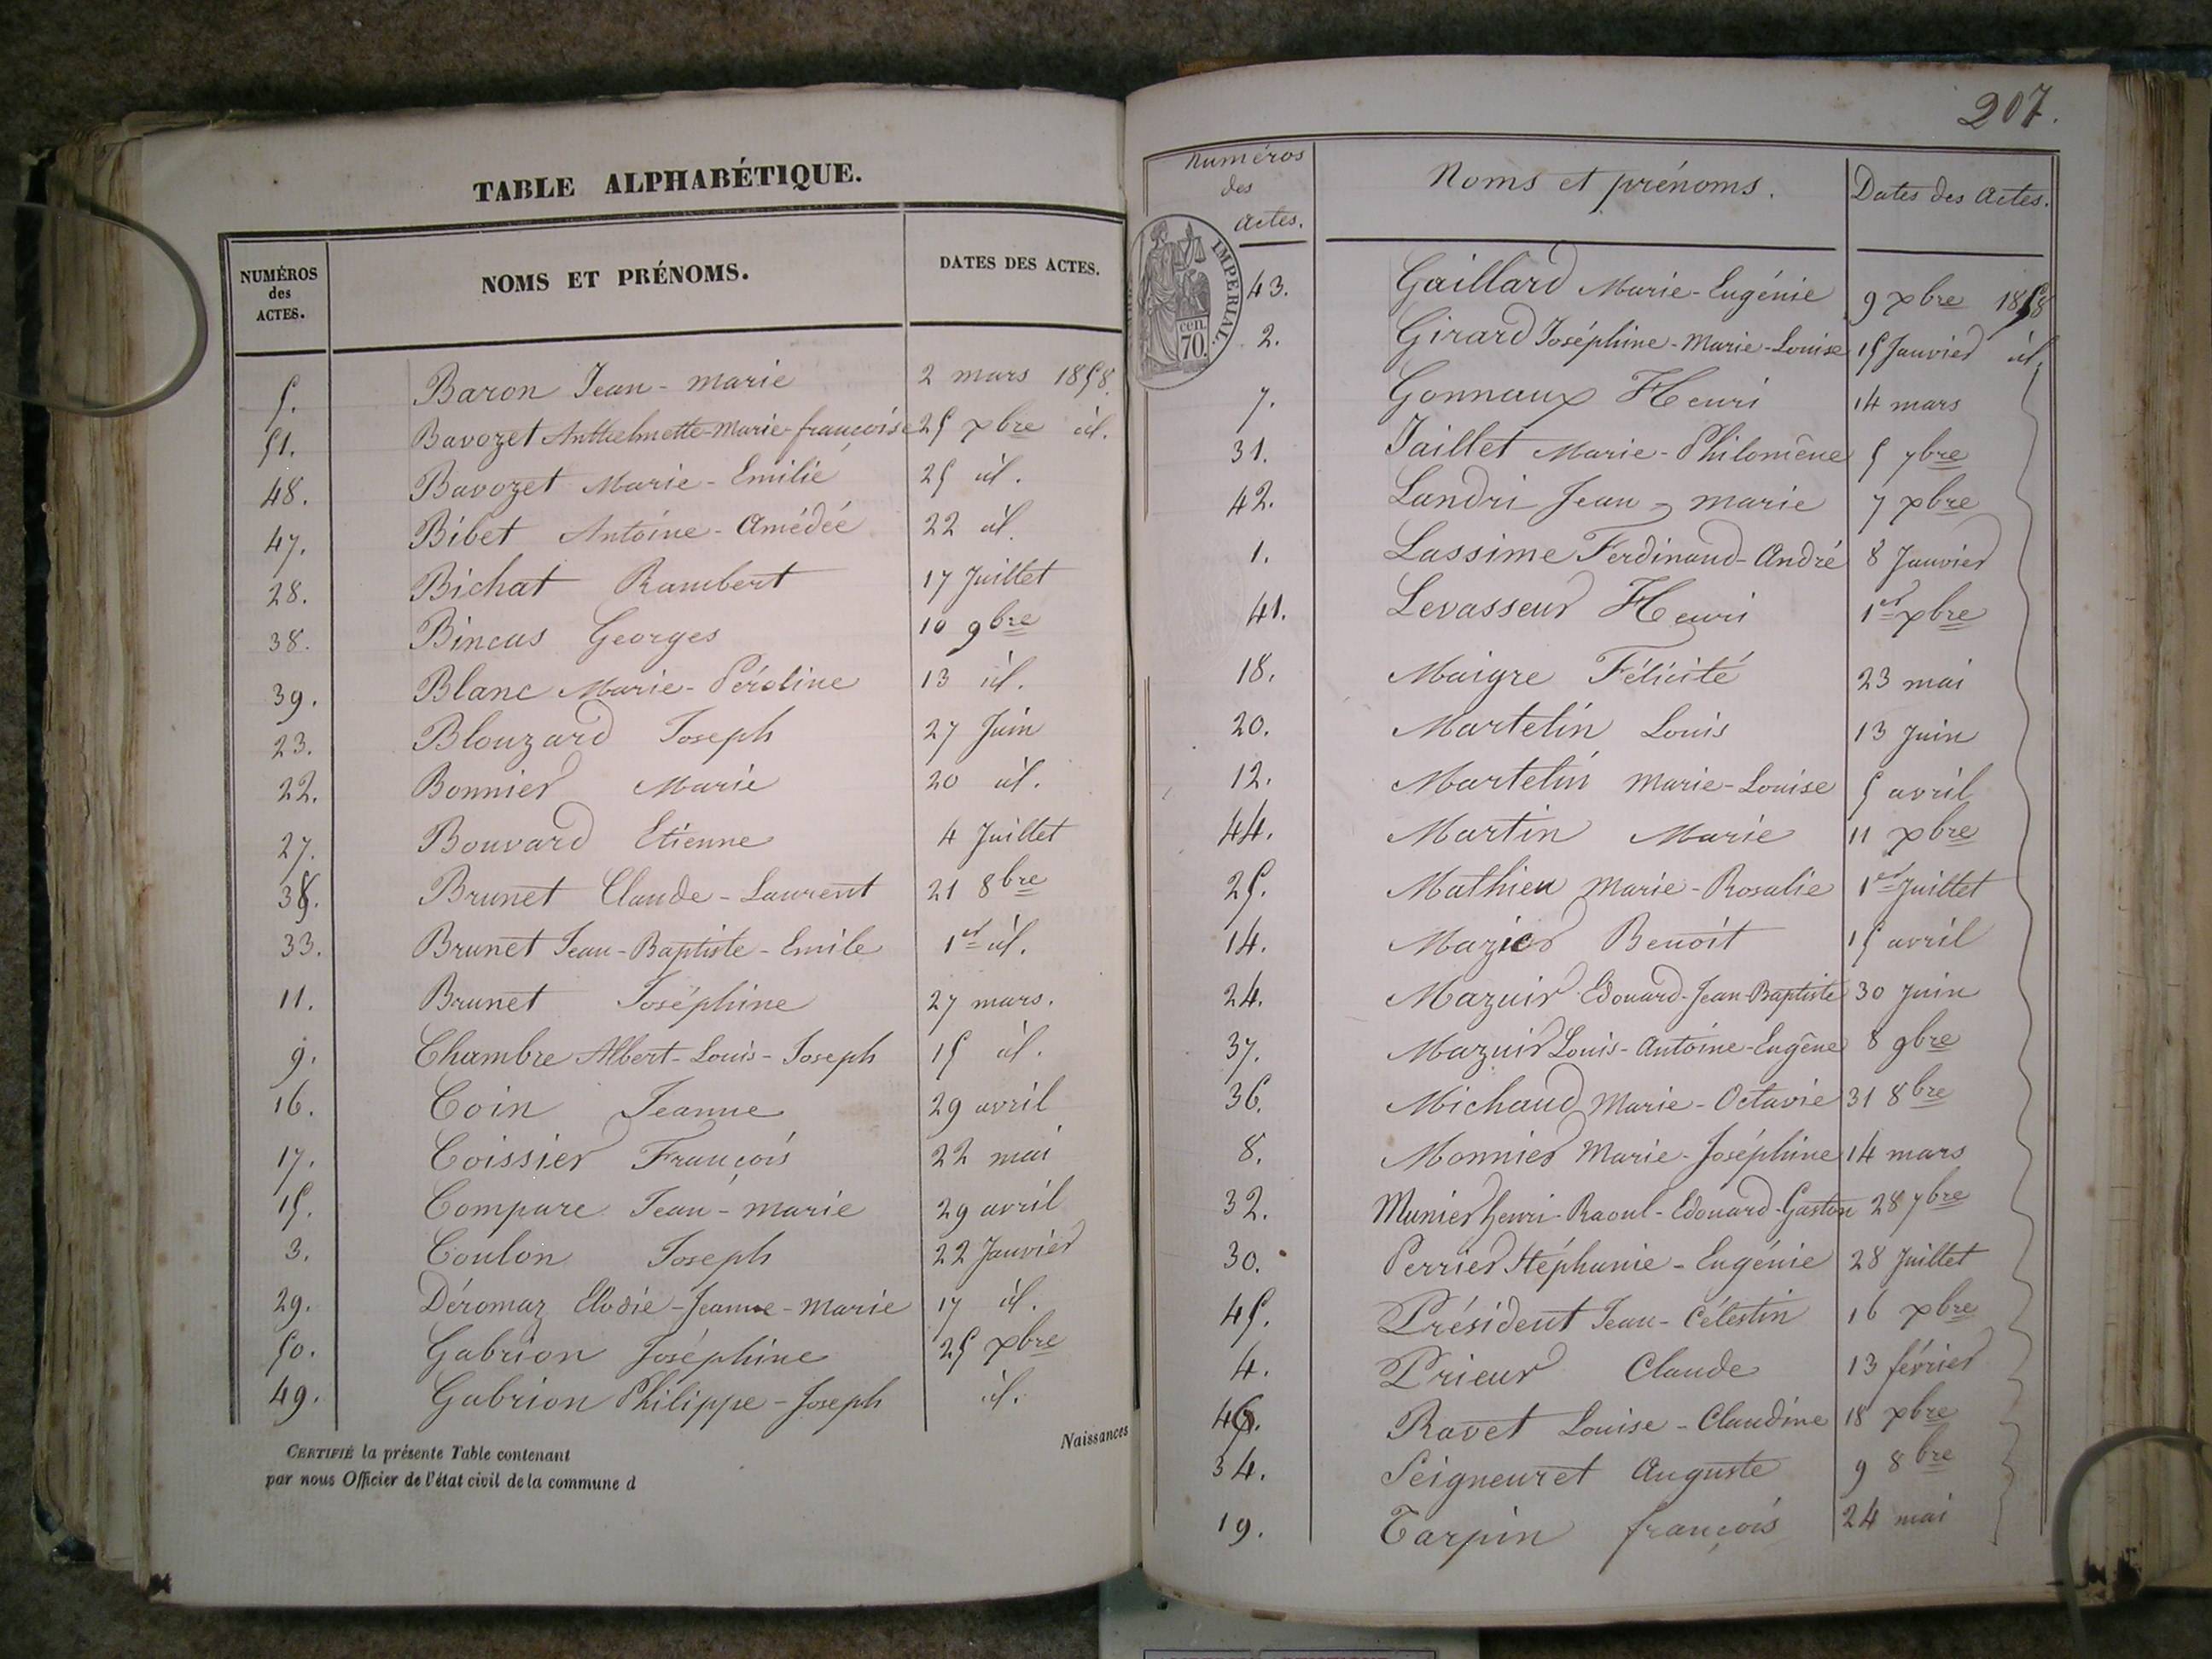 TABLE ALPHABÉTIQUE.
NUMÉROS des ACTES. NOMS ET PRÉNOMS. DATES DES ACTES.
5. Baron Jean-marie 2 mars 1858.
51. Bavozet Anthelmette-Marie-françoise 25 xbre id.
48. Bavozet Marie-Emilie 25 id.
47. Bibet Antoine-Amédée 22 id.
28. Bichat Rambert 17 Juillet
38. Bincas Georges 10 9bre
39. Blanc Marie-Péroline 13 id.
23. Blouzard Joseph 27 Juin
22. Bonnier Marie 20 id.
27. Bouvard Etienne 4 Juillet
35. Brunet Claude-Laurent 21 8bre
33. Brunet Jean-Baptiste-Emile 1er id.
11. Brunet Joséphine 27 mars.
9. Chambre Albert-Louis-Joseph 15 id.
16. Coin Jeanne 29 avril
17. Coissier François 22 mai
15. Compare Jean-marie 29 avril
3. Coulon Joseph 22 Janvier
29. Déromaz Elodie-Jeanne-marie 17 id.
50. Gabrion Joséphine 25 xbre
49. Gabrion Philippe-Joseph id.
CERTIFIÉ la présente Table contenant Naissances
par nous Officier de l'état civil de la commune d
207.
Numéros des actes. Noms et prénoms. Dates des actes.
IMPERIAL.
cen. 70.
43. Gaillard Marie-Eugénie 9 xbre 1858
2. Girard Joséphine-Marie-Louise 15 Janvier id.
7. Gonnaux Henri 14 mars
31. Jaillet Marie-Philomène 5 7bre
42. Landri Jean-marie 7 xbre
1. Lassime Ferdinand-André 8 Janvier
41. Levasseur Henri 1er xbre
18. Maigre Félicité 23 mai
20. Martelin Louis 13 Juin
12. Martelin Marie-Louise 5 avril
44. Martin Marie 11 xbre
25. Mathieu Marie-Rosalie 1er Juillet
14. Mazier Benoit 15 avril
24. Mazuir Edouard-Jean-Baptiste 30 Juin
37. Mazuir Louis-Antoine-Eugène 8 9bre
36. Michaud Marie-Octavie 31 8bre
8. Monnier Marie-Joséphine 14 mars
32. Munier henri-Raoul-Edouard-Gaston 28 7bre
30. Perrier Stéphanie-Eugénie 28 Juillet
45. Président Jean-Célestin 16 xbre
4. Prieur Claude 13 février
46. Ravet Louise-Claudine 18 xbre
34. Seigneuret Auguste 9 8bre
19. Tarpin françois 24 mai